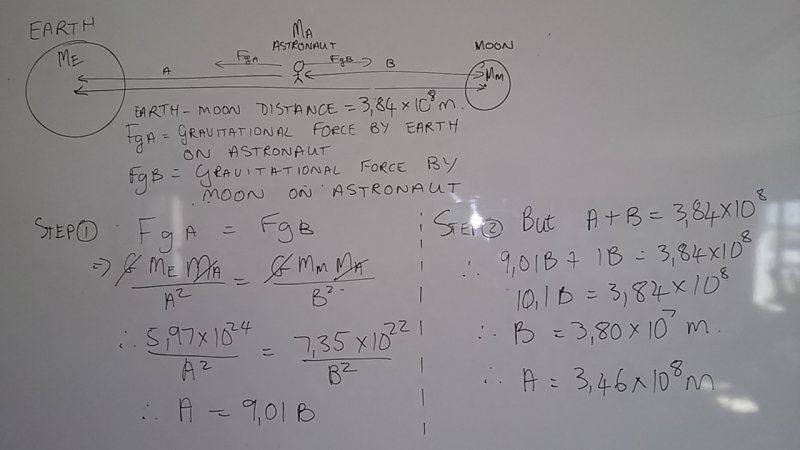 EARTH
MA
ASTRONAUT
MOON
ME
FgA
FgB
A
B
Mm
EARTH-MOON DISTANCE = 3,84 × 10⁸ m.
FgA = GRAVITATIONAL FORCE BY EARTH
ON ASTRONAUT
FgB = GRAVITATIONAL FORCE BY
MOON ON ASTRONAUT
STEP ① FgA = FgB
⇒ G ME MA / A² = G MM MA / B²
∴ 5,97×10²⁴ / A² = 7,35×10²² / B²
∴ A = 9,01B
STEP ② But A+B = 3,84×10⁸
∴ 9,01B + 1B = 3,84×10⁸
10,1B = 3,84×10⁸
∴ B = 3,80×10⁷ m.
∴ A = 3,46×10⁸ m